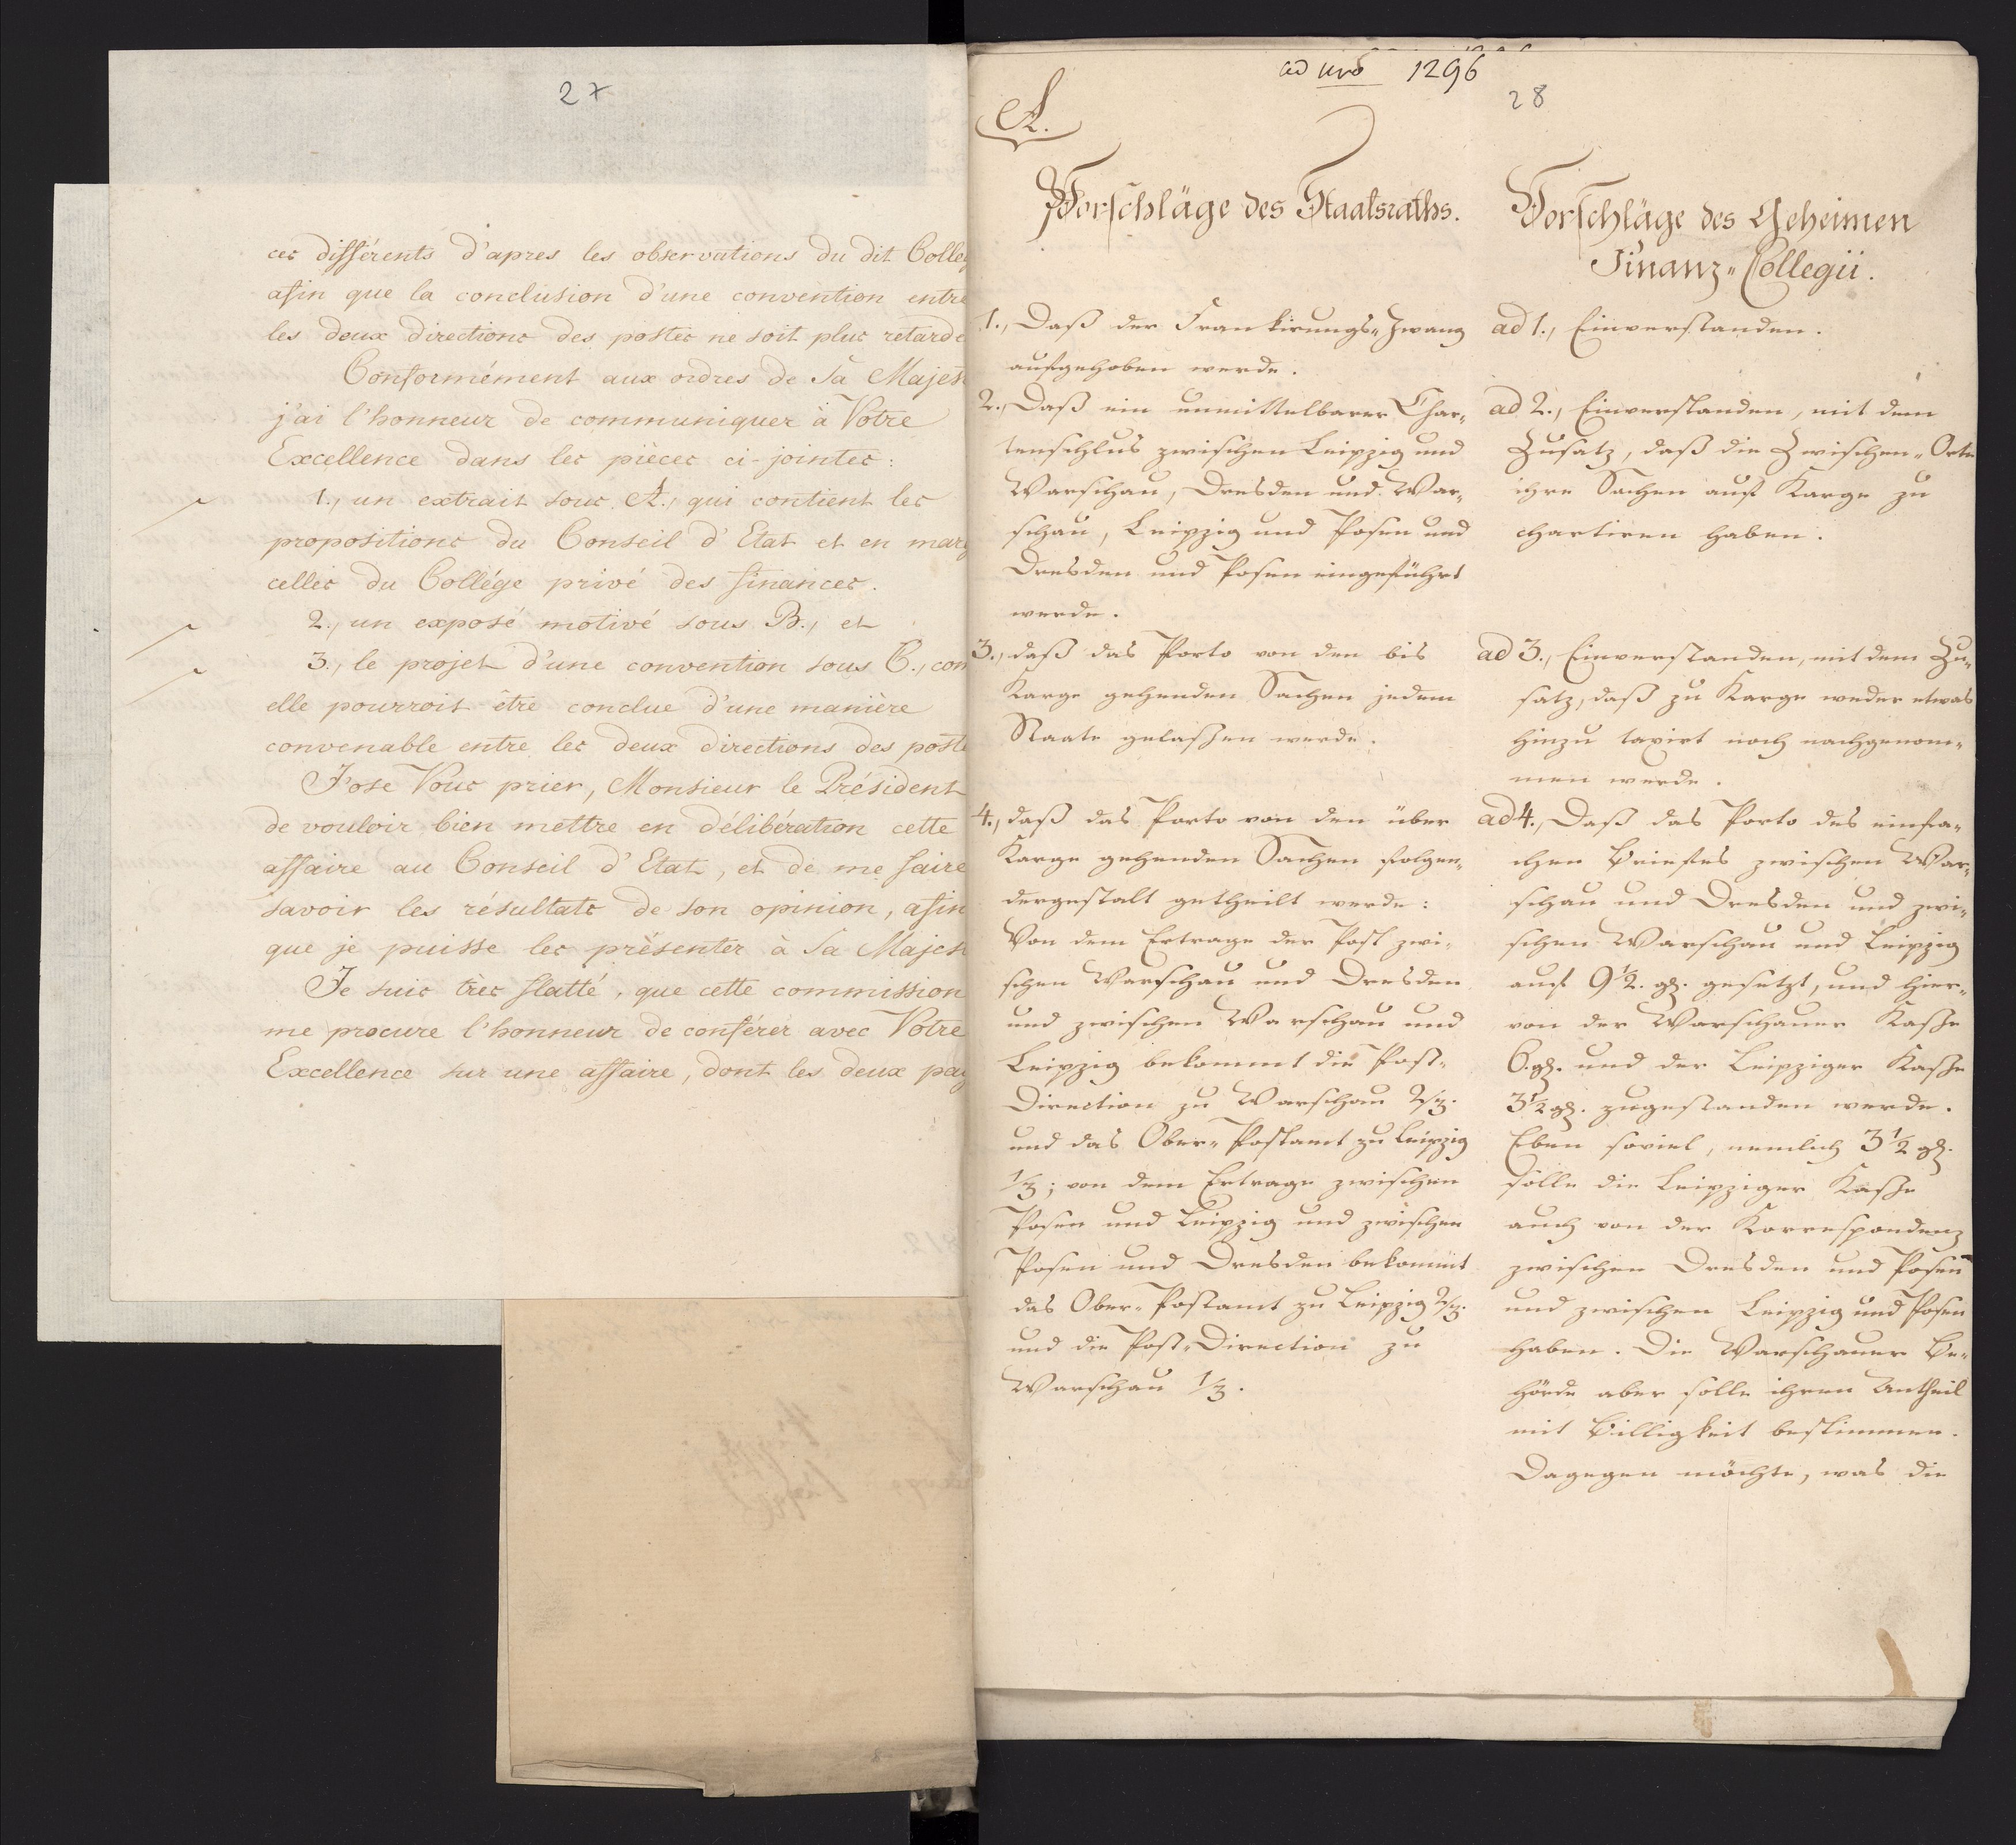 27
ces différents d'apres les observations du dit Colle
afin que la conclusion d'une convention entre
les deux directions des postes ne soit plus retarde
Conformément aux ordres de Sa Majest
j'ai l'honneur de communiquer à Votre
Excellence dans les pièces ci-jointes:
1., un extrait sous A., qui contient les
propositions du Conseil d'Etat et en marg
celles du Collége privé des finances.
2., un exposé motivé sous B., et
3., le projet d'une convention sous C., com
elle pourroit être conclue d'une manière
convenable entre les deux directions des poste
J'ose Vous prier, Monsieur le Président
de vouloir bien mettre en délibération cette
affaire au Conseil d'Etat, et de me faire
savoir les résultats de son opinion, afin
que je puisse les présenter à Sa Majest
Je suis très flatté, que cette commission
me procure l'honneur de conférer avec Votre
Excellence sur une affaire, dont les deux pay
ad nro 1296
28
A.
Vorschläge des Staatsraths.
1., Daß der Frankirungs-Zwang
aufgehoben werde.
2., Daß ein unmittelbarer Char-
tenschlus zwischen Leipzig und
Warschau, Dresden und War-
schau, Leipzig und Posen und
Dresden und Posen eingeführt
werde.
3., daß das Porto von den bis
Karge gehenden Sachen jedem
Staate gelaßen werde.
4., daß das Porto von den über
Karge gehenden Sachen folgen-
dergestalt getheilt werde:
Von dem Ertrage der Post zwi-
schen Warschau und Dresden
und zwischen Warschau und
Leipzig bekommt die Post-
Direction zu Warschau 2/3.
und das Ober-Postamt zu Leipzig
1/3; von dem Ertrage zwischen
Posen und Leipzig und zwischen
Posen und Dresden bekommt
das Ober-Postamt zu Leipzig 2/3.
und die Post-Direction zu
Warschau 1/3.
Vorschläge des Geheimen
Finanz-Collegii.
ad 1., Einverstanden.
ad 2., Einverstanden, mit dem
Zusatz, daß die Zwischen-Orte
ihre Sachen auf Karge zu
chartiren haben.
ad 3., Einverstanden, mit dem Zu-
satz, daß zu Karge weder etwas
hinzu taxirt noch nachgenom-
men werde.
ad 4., Daß das Porto des einfa-
chen Briefes zwischen War-
schau und Dresden und zwi-
schen Warschau und Leipzig
auf 9 1/2. gr. gesetzt, und hier-
von der Warschauer Kaße
6. gr. und der Leipziger Kaße
3 1/2 gr. zugestanden werde.
Eben soviel, nemlich 3 1/2 gr.
solle die Leipziger Kaße
auch von der Korrespondenz
zwischen Dresden und Posen
und zwischen Leipzig und Posen
haben. Die Warschauer Be-
hörde aber solle ihren Antheil
mit Billigkeit bestimmen.
Dagegen möchte, was die